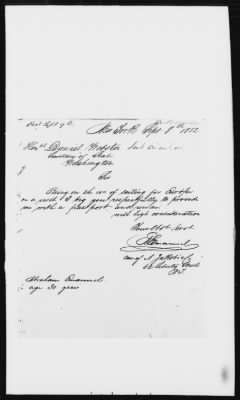 Recd Sept 9th
New York Sept 8th 1852
Honble Daniel Webster
Secretary of State
Washington
Sir
Being on the eve of sailing for Europe
on a visit I beg you respectfully to provide
me with a passport and remain
with high consideration
Your Obt Servt
Emanuel
care of A.
Liberty Street
N.Y.
Abraham Emanuel
age 30 years